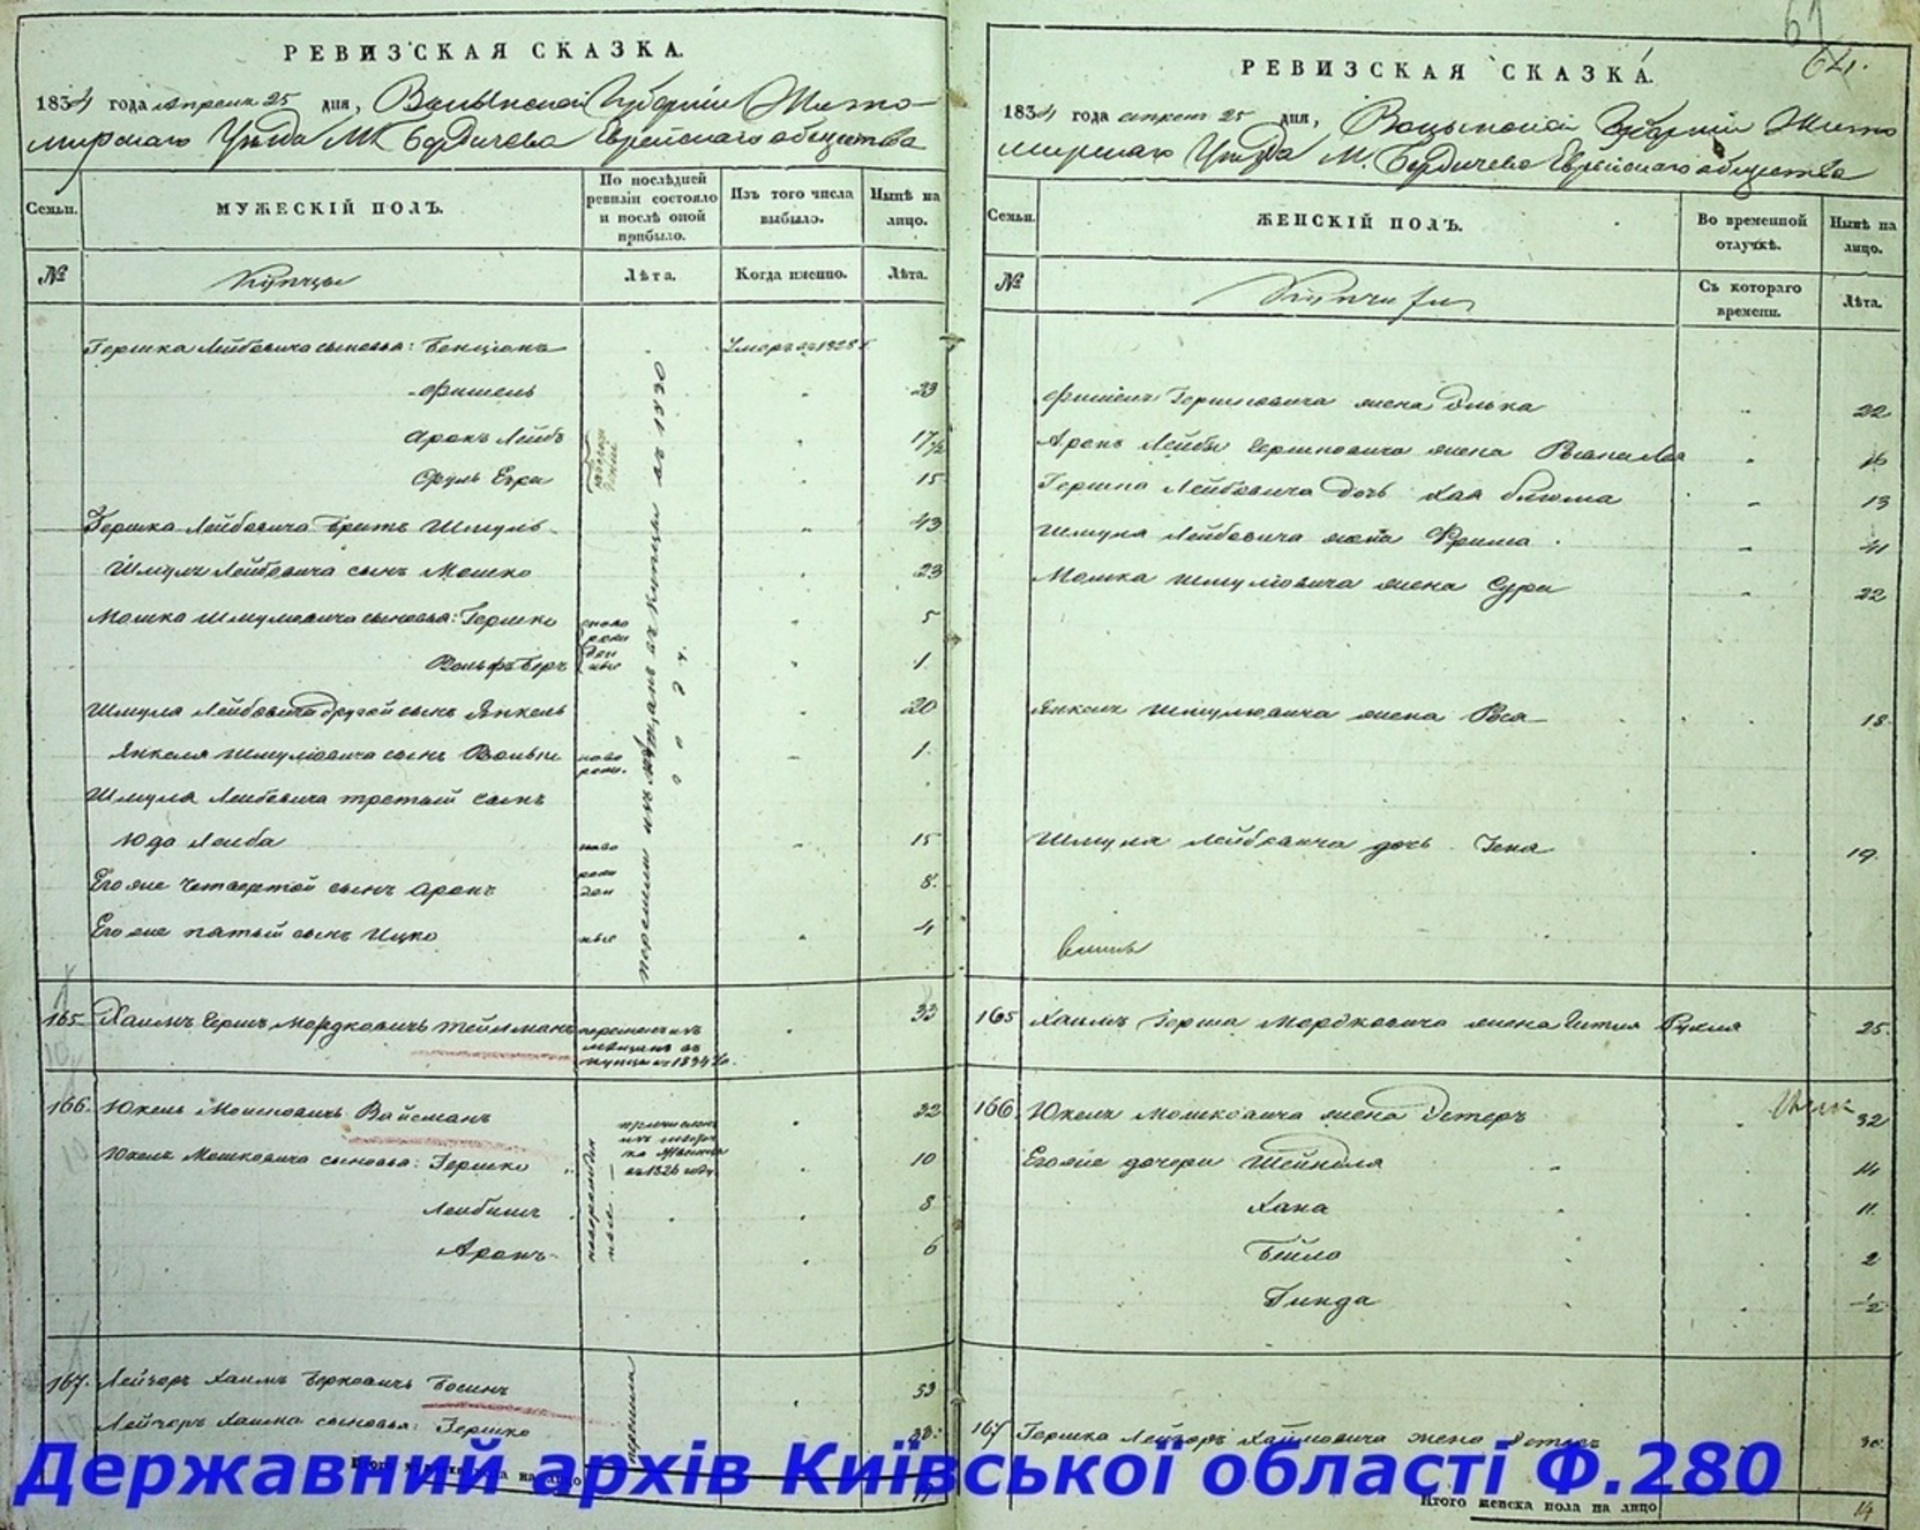 РЕВИЗСКАЯ СКАЗКА.
1834 года апреля 25 дня, Волынской Губерніи Жито-
мирскаго Уезда М. Бердичева Еврейскаго общества
Семьи.
МУЖЕСКІЙ ПОЛЪ.
По послѣдней ревизіи состояло и послѣ оной прибыло.
Изъ того числа выбыло.
Нынѣ на лицо.
№
Купцы
Лѣта.
Когда именно.
Лѣта.
Гершка Лейбовича сыновья: Бенціонъ умеръ въ 1828 г.
Фишель 23
Аронъ Лейбъ 17 1/2
Сруль 15
Гершка Лейбовича братъ Шмуль 43
Шмуля Лейбовича сынъ Мошко 23
Мошка Шмулевича сыновья: Гершко 5
Вольфъ Беръ 1
новорожденные
Шмуля Лейбовича другой сынъ Янкель 20
Янкеля Шмулевича сынъ 1
новорож.
Шмуля Лейбовича третьій сынъ
Юдо Лейба 15
Его же четвертой сынъ Аронъ 8
Его же пятый сынъ Ицко 4
новорожденные
перешли изъ мѣщанъ въ купцы въ 1830 году
165 Хаимъ Гершъ Мордковичъ Тейлманъ перешелъ изъ мещанъ въ купцы 1834 г. 33
166. Юкель Мошковичъ Вайсманъ 32
Юкеля Мошковича сыновья: Гершко 10
Лейбишъ 8
Аронъ 6
новорожденные
167. Лейзоръ Хаимъ Берковичъ 53
Лейзоръ Хаима сыновья: Гершко
РЕВИЗСКАЯ СКАЗКА.
64.
1834 года апреля 25 дня, Волынской Губерніи Жито
мирскаго Уезда М. Бердичева Еврейскаго общества
Семьи.
ЖЕНСКІЙ ПОЛЪ.
Во временной отлучкѣ.
Нынѣ на лицо.
№
Съ котораго времени.
Лѣта.
Фишеля Гершковича жена 22
Аронъ Лейбы Гершковича жена 16
Гершка Лейбовича дочь Хая Блюма 13
Шмуля Лейбовича жена Фрима 41
Мошка Шмулевича жена Сура 22
Янкеля Шмулевича жена 18
Шмуля Лейбовича дочь Гена 19.
165 Хаимъ Герша Мордковича жена 25.
166 Юкеля Мошковича жена Эстеръ 32
Его же дочери Шейндля 14
Хана 11.
Бейло 2
Гинда 1/2
167 Гершка Лейзоръ Хаимовича жена Эстеръ 30.
Итого женска пола на лицо 14
Державний архів Київської області Ф.280